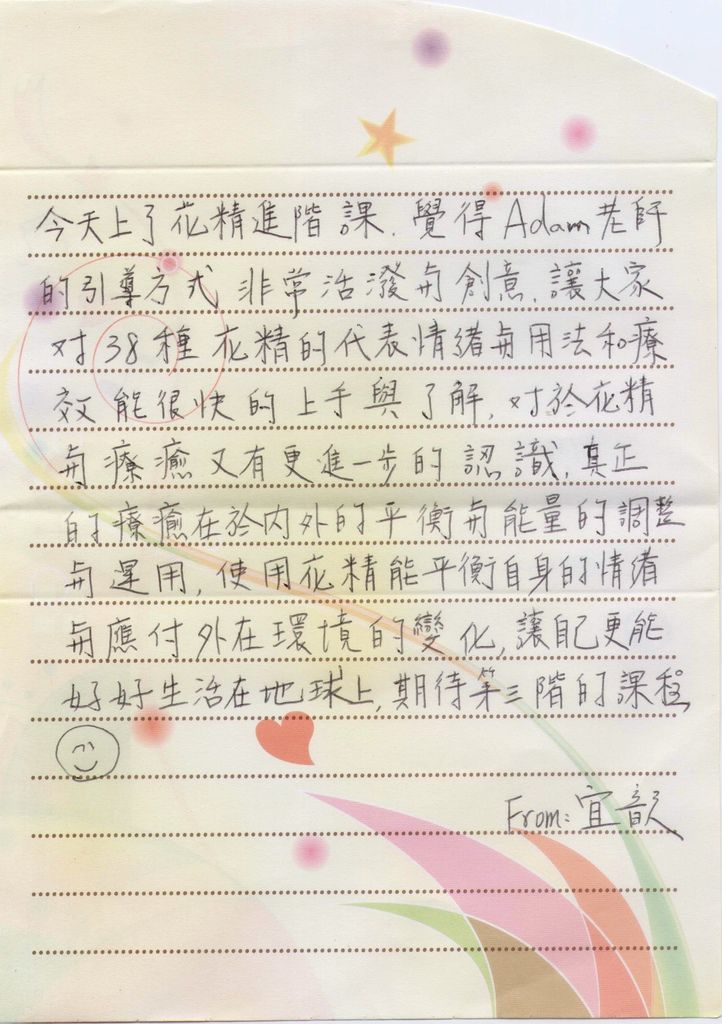 今天上了花精進階課. 覺得Adam老師
的引導方式 非常活潑与創意, 讓大家
对38種花精的代表情緒与用法和療
效能很快的上手與了解, 对於花精
与療癒又有更進一步的認識, 真正
的療癒在於內外的平衡与能量的調整
与運用, 使用花精能平衡自身的情緒
与應付外在環境的變化, 讓自己更能
好好生活在地球上, 期待第三階的課程
From: 宜歆